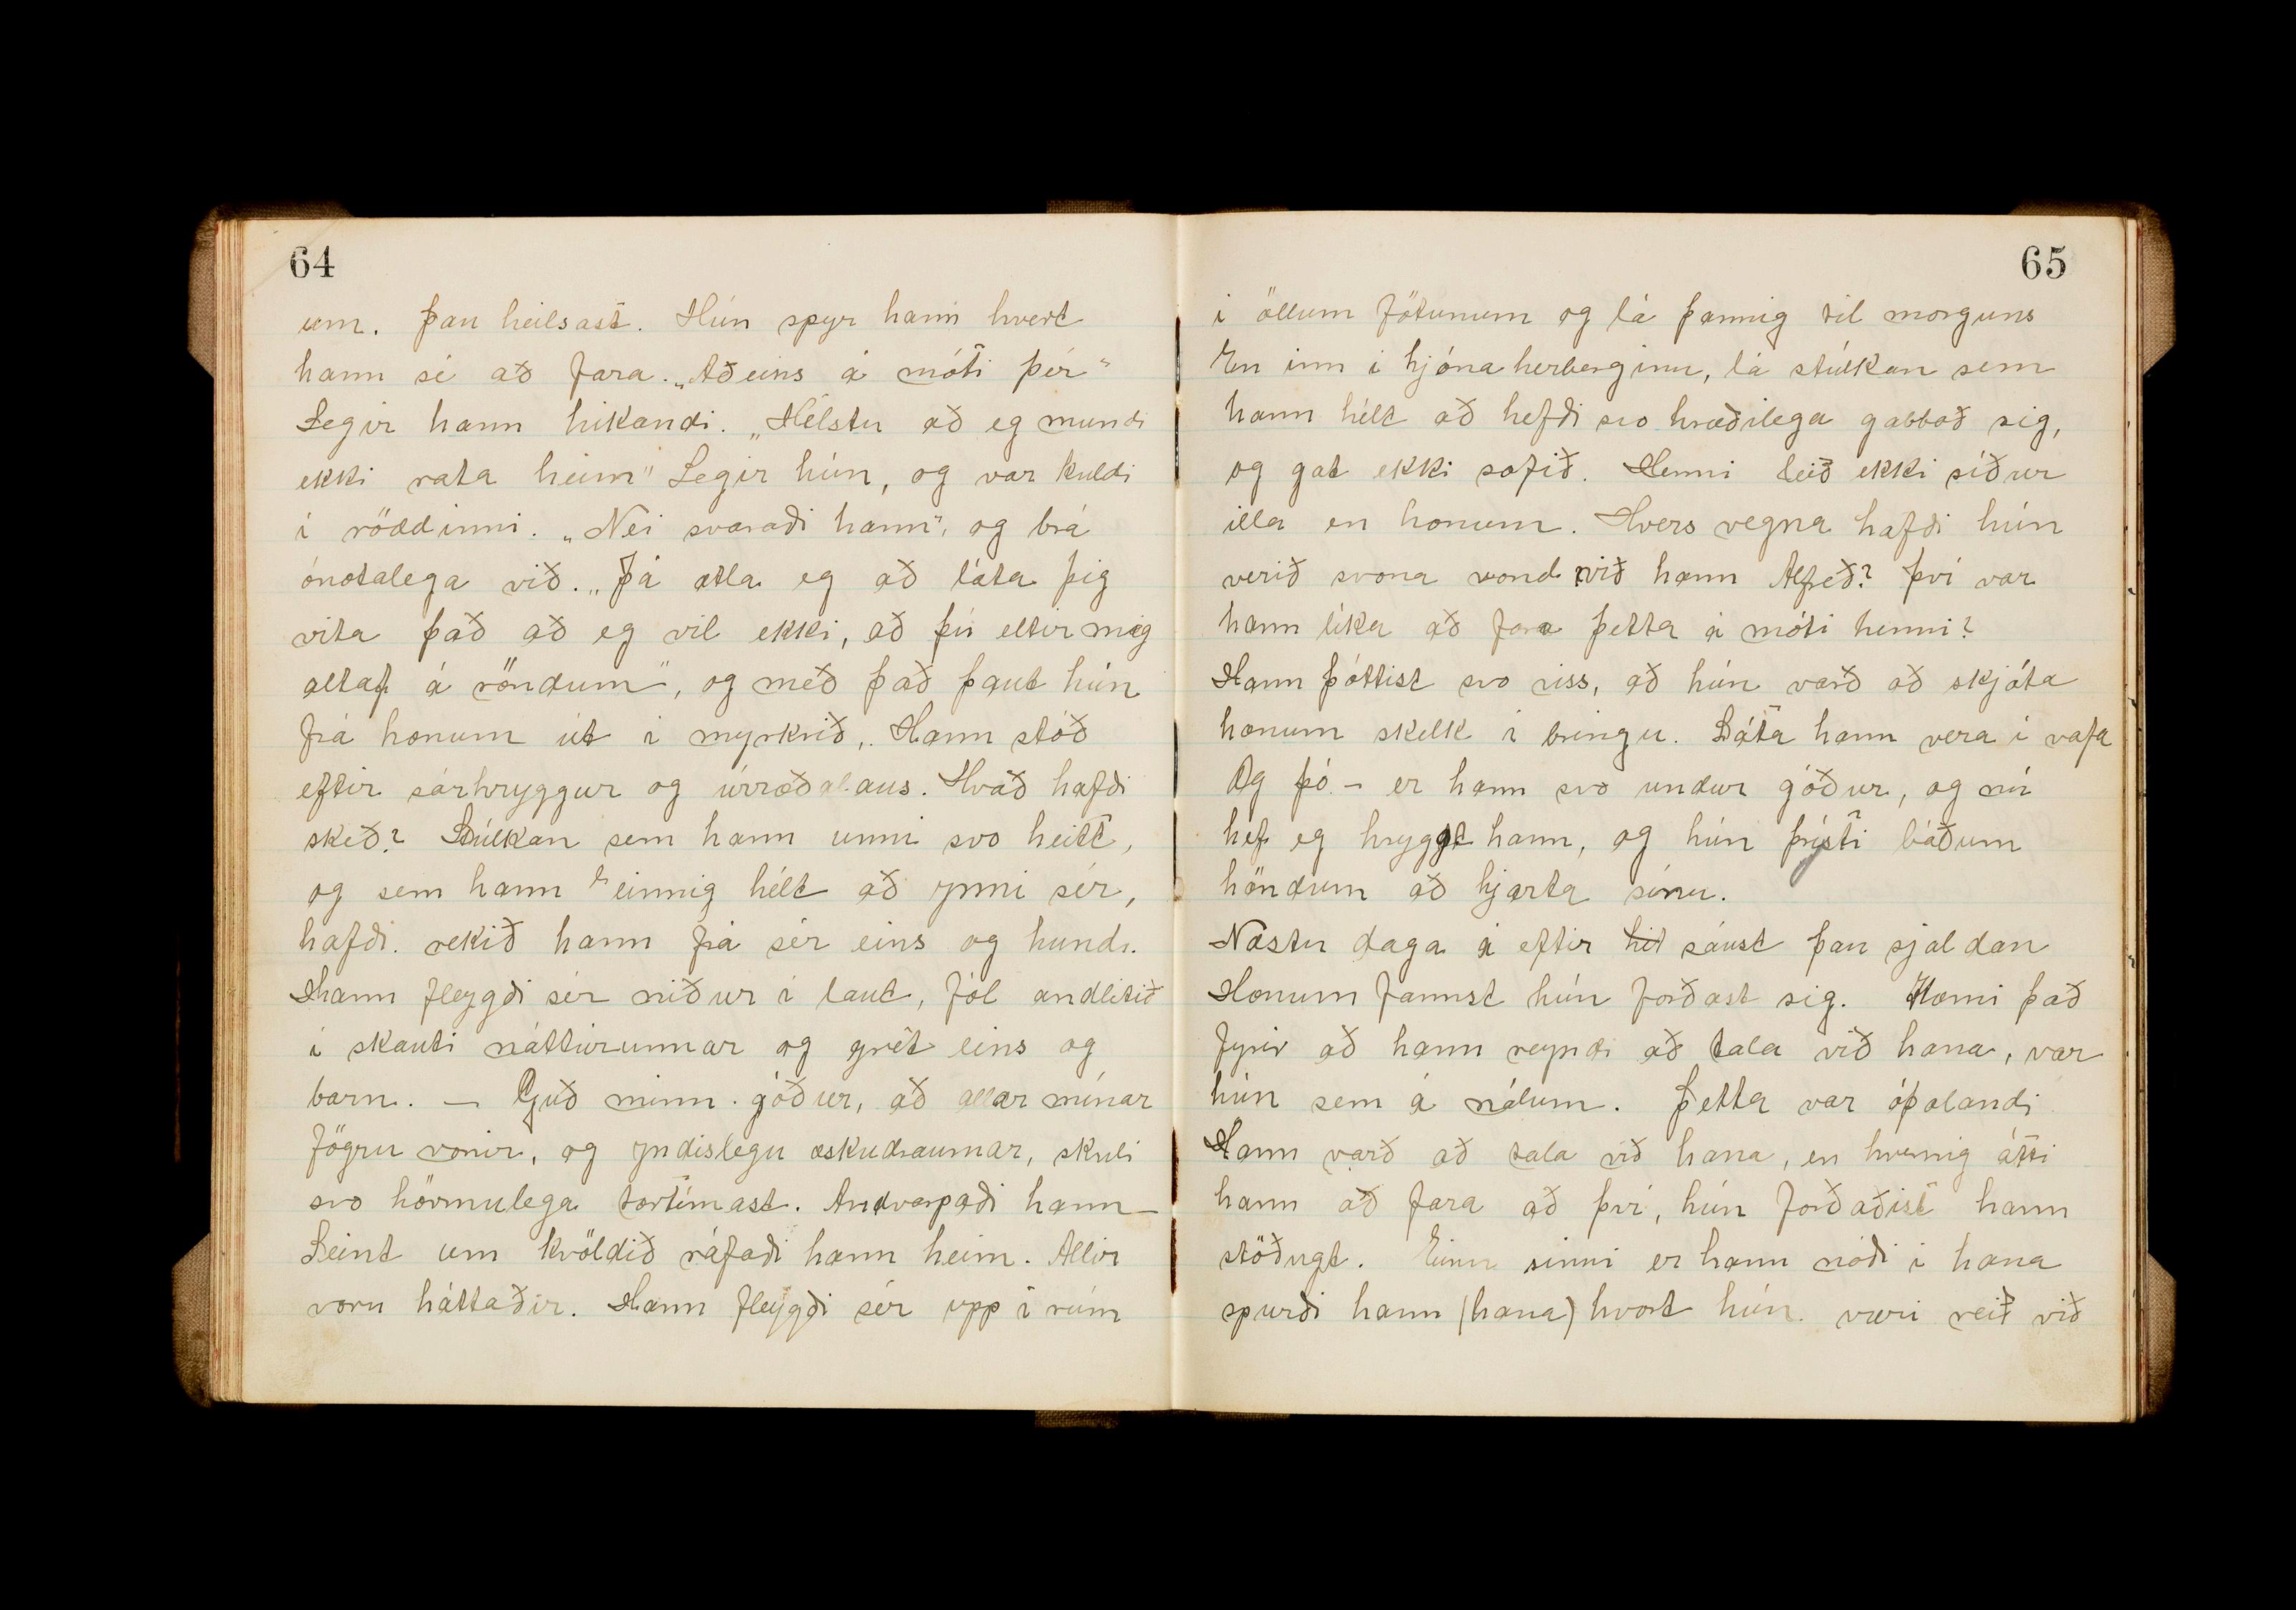 64
um. Þau heilsast. Hún spyr hann hvert
hann sé að fara. „Aðeins á móti þér"
Segir hann hikandi. „Hélstu að eg mundi
ekki rata heim" Segir hún, og var kuldi
í röddinni. „Nei svaraði hann", og brá
ónotalega við. „Þá ætla eg að láta þig
vita það að eg vil ekki, að þú eltir mig
altaf á röndum", og með það þaut hún
frá honum út í myrkrið,. Hann stóð
eftir sárhryggur og úrræðalaus. Hvað hafði
skeð? Stúlkan sem hann unni svo heitt,
og sem hann einnig hélt að ynni sér,
hafði. rekið hann frá sér eins og hund.
Hann fleygði sér niður í laut, fól andlitið
í skauti náttúrunnar og grét eins og
barn. — Guð minn góður, að allar mínar
fögru vonir, og yndislegu æskudraumar, skuli
svo hörmulega tortímast. Andvarpaði hann—
Seint um kvöldið ráfaði hann heim. Allir
voru háttaðir. Hann fleygði sér upp í rúm
65
í öllum fötunum og lá þannig til morguns
En inn í hjónaherberginu, lá stúlkan sem
hann hélt að hefði svo hræðilega gabbað sig,
og gat ekki sofið. Henni leið ekki síður
illa en honum. Hvers vegna hafði hún
verið svona vond við hann Alfreð? Því var
hann líka að fara þetta á móti henni?
Hann þóttist svo viss, að hún varð að skjóta
honum skelk í bringu. Láta hann vera í vafa
Og þó. — er hann svo undur góður, og nú
hef eg hryggt hann, og hún þrýsti báðum
höndum að hjarta sínu.
Næstu daga á eftir hit sáust þau sjaldan
Honum fannst hún forðast sig. Kæmi það
fyrir að hann reyndi að tala við hana, var
hún sem á nálum. Þetta var óþolandi
Hann varð að tala við hana, en hvernig átti
hann að fara að því, hún forðaðist hann
stöðugt. Einu sinni er hann náði í hana
spurði hann (hana) hvort hún. væri reið við